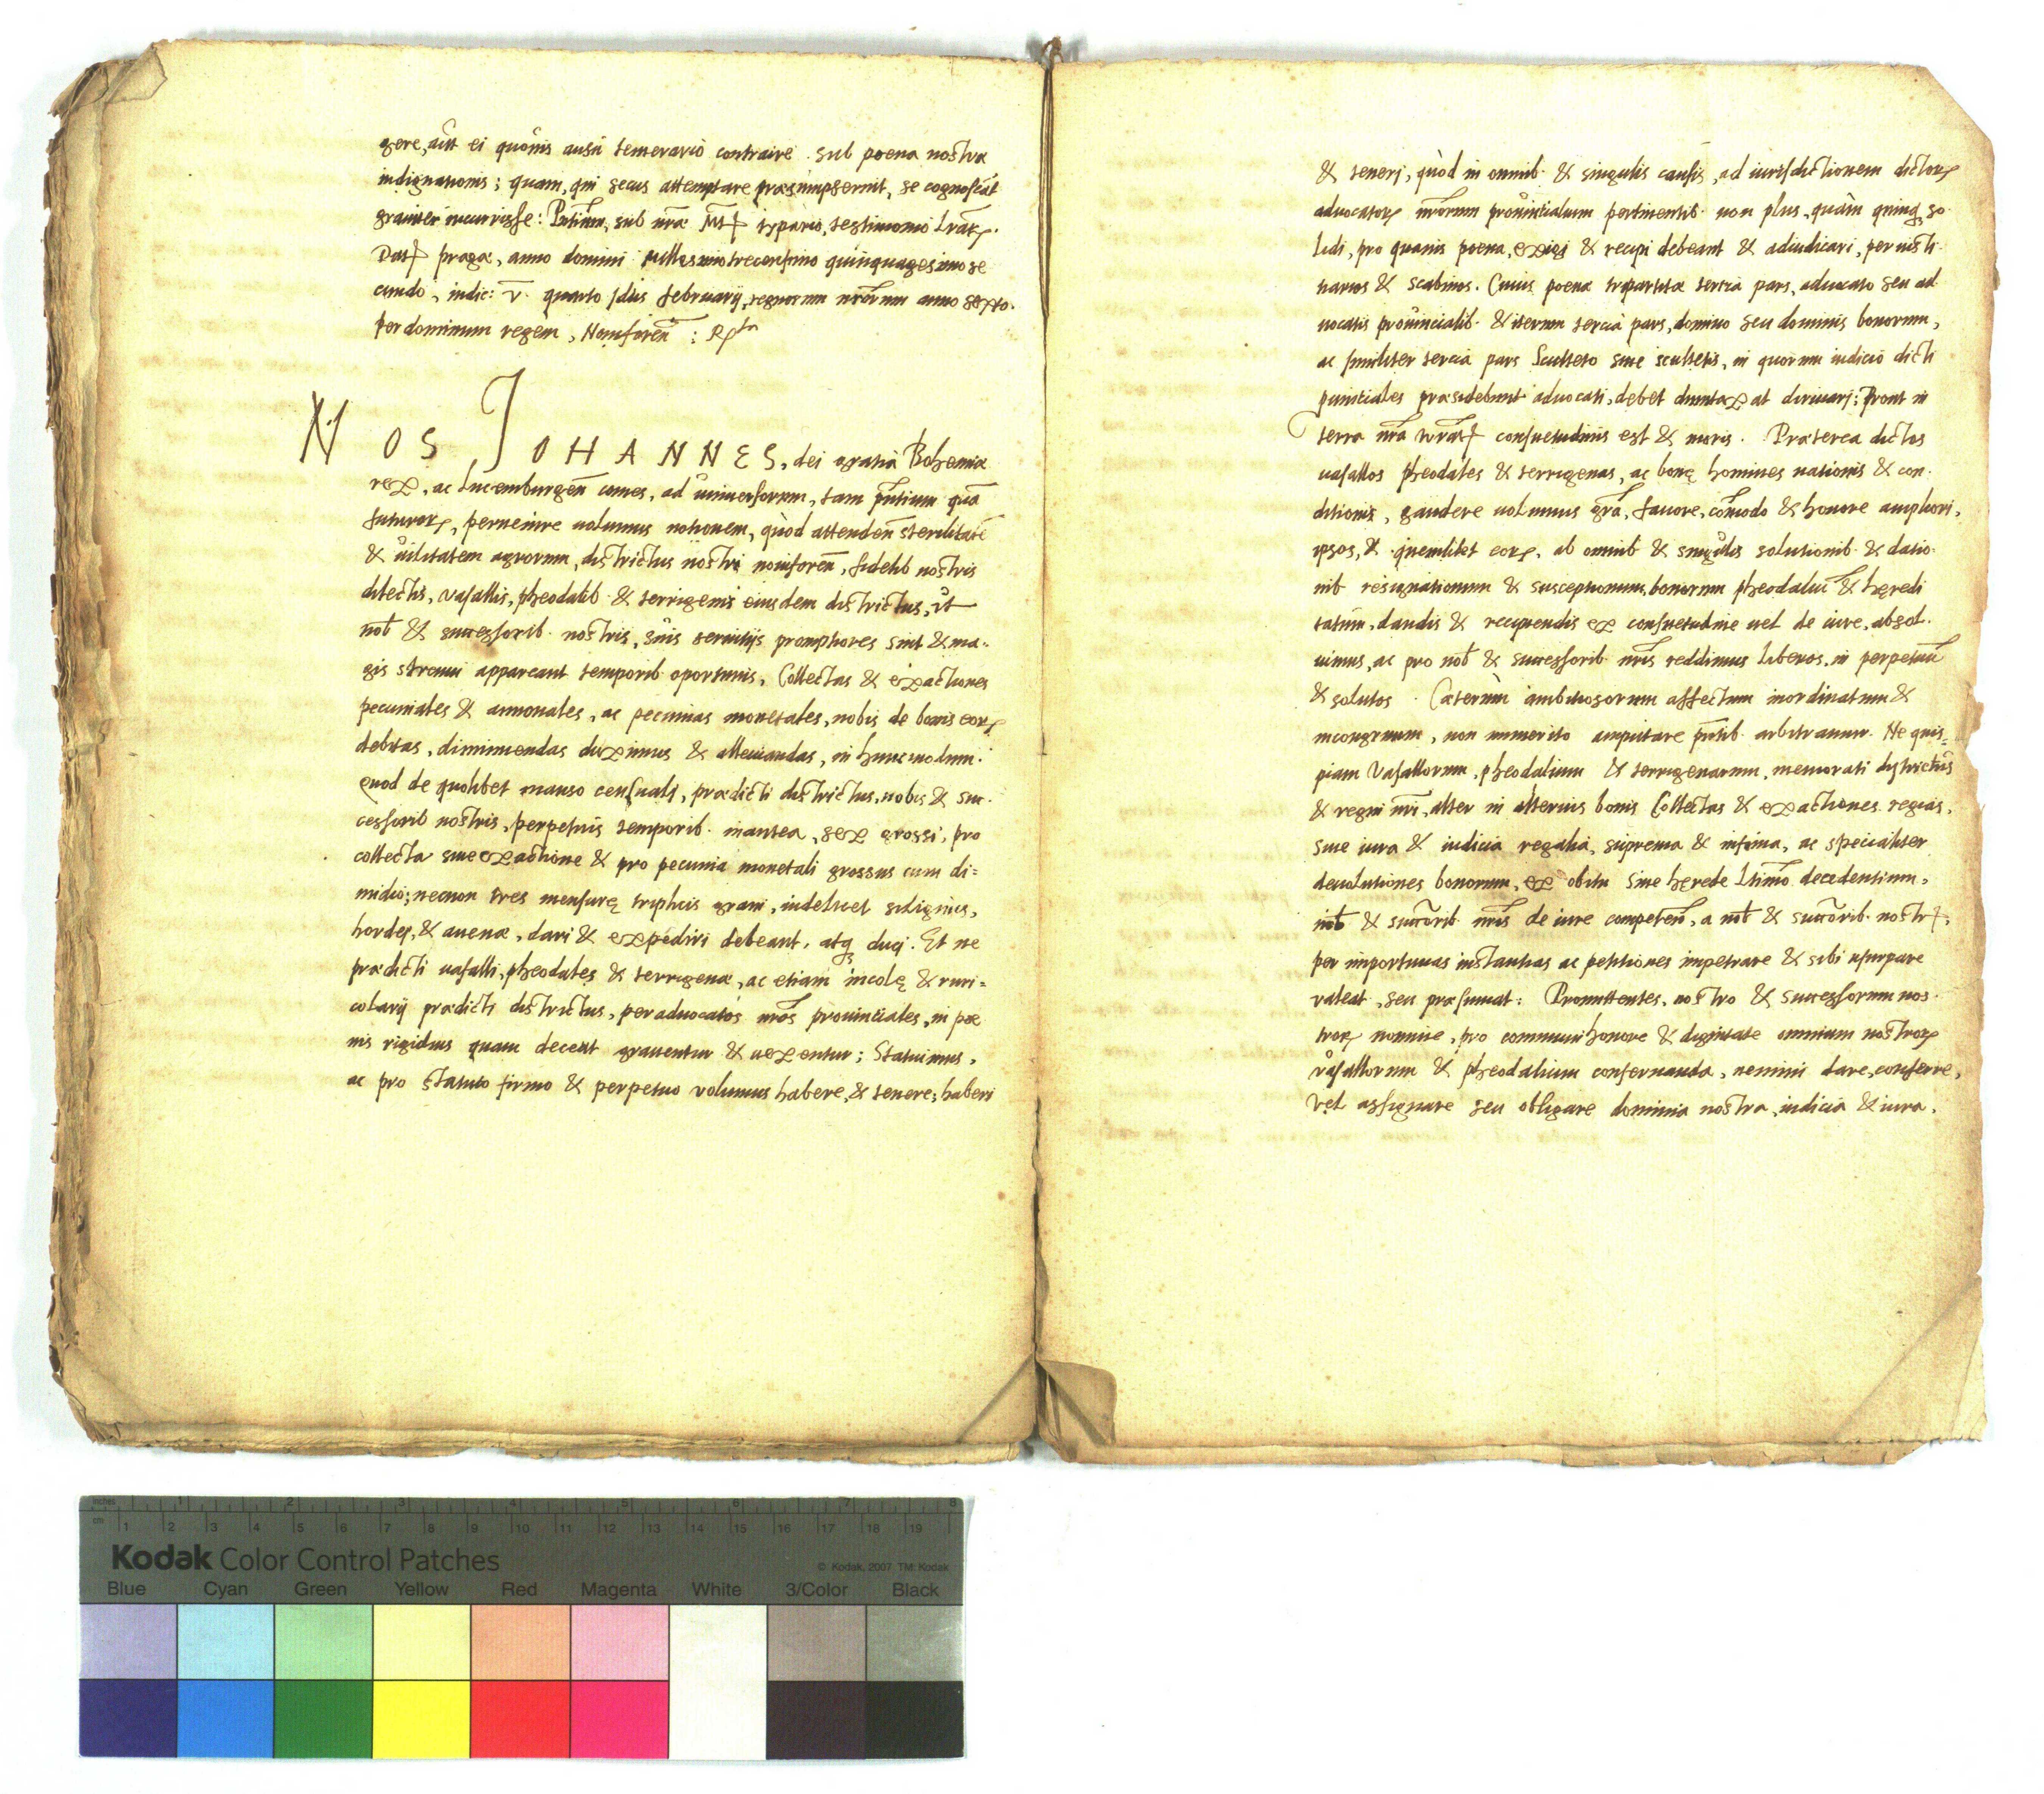 gere, aut ei quouis ausu temerario contraire. sub poena nostrae
indignationis; quam, qui secus attemptare praesumpserint, se cognoscat
grauiter incurrisse: sub typario, testimonio lrar.
Dat pragae, anno domini millesimo trecensimo quinquagesimo se
cundo, indic: v. quarto Idus februarij, regnorum nrorum anno sexto.
per dominum regem, Nouiforen: Rta
NOS JOHANNES, dei gratia Bohemiae
rex, ac Lucemburgen comes, ad uniuersorum, tam pntium qua
futuror, peruenire uolumus notionem, quòd attenden sterilitate
& uilitatem agrorum, districtus nostri nouiforen, fidelib nostris
dilectis, vasallis, pheodalib & terrigenis eiusdem districtus, vt
nob & successorib. nostris, suis seruitijs promptiores sint & ma-
gis strenui appareant temporib oportunis, Collectas & exactiones
pecuniales & annonales, ac pecunias monetales, nobis de bonis eor
debitas, diminuendas duximus & alleuiandas, in hunc modum.
Quod de quolibet manso censuali, praedicti districtus, nobis & suc-
cessorib nostris, perpetuis temporib. inantea, sex grossi, pro
collecta siue exactione & pro pecunia monetali grossus cum di=
midio; necnon tres mensurę triplicis grani, uidelicet siliginis,
hordej, & auenae, dari & expediri debeant, atq ducj. Et ne
praedicti uasalli, pheodales & terrigenae, ac etiam incolę & ruri=
colarij praedicti districtus, per aduocatos nros prouinciales, in poe
nis rigidius quam deceat grauentur & uexentur; Statuimus,
ac pro statuto firmo & perpetuo volumus habere, & tenere; haberi
& tenerj, quòd in omnib. & singulis causis, ad iurisdictionem dictor
aduocator nrorum prouincialium pertinentib. non plus, quàm quinq so-
lidi, pro quauis poena, exigi & recipi debeant & adiudicari, per iusti-
tiarios & scabinos. Cuius poenae tripartitae tercia pars, aduocato seu ad
uocatis prouincialib. & iterum tercia pars, domino seu dominis bonorum,
ac similiter tercia pars Sculteto siue scultetis, in quorum iudicio dicti
puinciales praesidebunt aduocati, debet dumtaxat deriuarj; Prout in
terra nra consuetudinis est & moris. Praeterea dictos
uasallos pheodales & terrigenas, ac bonę homines nationis & con-
ditionis, gaudere uolumus gra, fauore, comodo & honore ampliori,
ipsos, & quemlibet eor, ab omnib & singulis solutionib & datio-
nib resignationum & susceptionum, bonorum pheodaliu & hęredi
tatum, dandis & recipiendis ex consuetudine uel de iure, absol-
uimus, ac pro nob & successorib nris reddimus liberos, in perpetuu
& solutos. Caeterùm ambitiosorum affectum inordinatum &
incongruum, non immerito amputare pntib. arbitramur. Ne quis=
piam Vasallorum, pheodalium & terrigenarum, memorati districtus
& regni nri, alter in alterius bonis Collectas & exactiones regias,
siue iura & iudicia regalia, suprema & infima, ac specialiter
deuolutiones bonorum, ex obitu siue hęrede ltimo decedentium,
nob & succorib. nris de iure competen, a nob & succorib. nostr,
per importunas instantias ac petitiones impetrare & sibi usurpare
valeat, seu praesumat: Promittentes, nostro & successorum nos-
tror nomine, pro communi honore & dignitate omnium nostror
vasallorum & pheodalium conseruanda, nemini dare, conferre,
vel assignare seu obligare dominia nostra, iudicia & iura.
inches 1 2 3 4 5 6 7 8
cm 1 2 3 4 5 6 7 8 9 10 11 12 13 14 15 16 17 18 19
Kodak Color Control Patches © Kodak, 2007 TM: Kodak
Blue Cyan Green Yellow Red Magenta White 3/Color Black